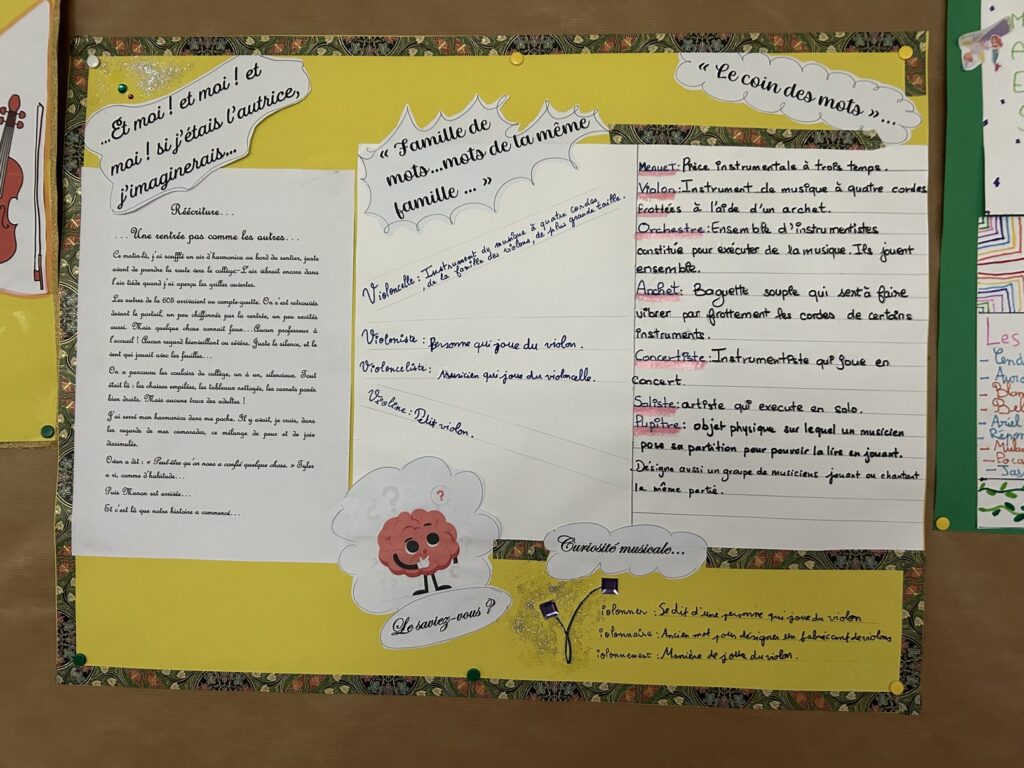 ...Et moi ! et moi ! et
moi ! si j'étais l'autrice,
j'imaginerais...
Réécriture...
...Une rentrée pas comme les autres...
Ce matin-là, j'ai soufflé un air d'harmonica au bord du sentier, juste
avant de prendre la route vers le collège. L'air vibrait encore dans
l'air tiède quand j'ai aperçu les grilles ouvertes.
Les autres de la 605 arrivaient au compte-goutte. On s'est retrouvés
devant le portail, un peu chiffonnés par la rentrée, un peu excités
aussi. Mais quelque chose sonnait faux...Aucun professeur à
l'accueil ! Aucun regard bienveillant ou sévère. Juste le silence, et le
vent qui jouait avec les feuilles...
On a parcouru les couloirs du collège, un à un, silencieux. Tout
était là : les chaises empilées, les tableaux nettoyés, les carnets posés
bien droits. Mais aucune trace des adultes !
J'ai serré mon harmonica dans ma poche. Il y avait, je crois, dans
les regards de mes camarades, ce mélange de peur et de joie
dissimulée.
Owen a dit : « Peut-être qu'on nous a confié quelque chose. » Tyler
a ri, comme d'habitude...
Puis Manon est arrivée...
Et c'est là que notre histoire a commencé...
« Famille de
mots...mots de la même
famille ... »
Violoncelle : Instrument de musique à quatre cordes,
de la famille des violons, de plus grande taille.
Violoniste : Personne qui joue du violon.
Violonceliste : Musicien qui joue du violoncelle.
Violine : Petit violon.
« Le coin des mots »...
Menuet : Pièce instrumentale à trois temps.
Violon : Instrument de musique à quatre cordes
frottées à l'aide d'un archet.
Orchestre : Ensemble d'instrumentistes
constitué pour exécuter de la musique. Ils jouent
ensemble.
Archet : Baguette souple qui sert à faire
vibrer par frottement les cordes de certains
instruments.
Concertiste : Instrumentiste qui joue en
concert.
Soliste : artiste qui execute en solo.
Pupitre : objet physique sur lequel un musicien
pose sa partition pour pouvoir la lire en jouant.
Désigne aussi un groupe de musiciens jouant ou chantant
la même partie.
Le saviez-vous ?
Curiosité musicale...
iolonner : Se dit d'une personne qui joue du violon
iolonnaire : Ancien mot pour désigner un fabricant de violons
iolonnement : Manière de jouer du violon.
Les